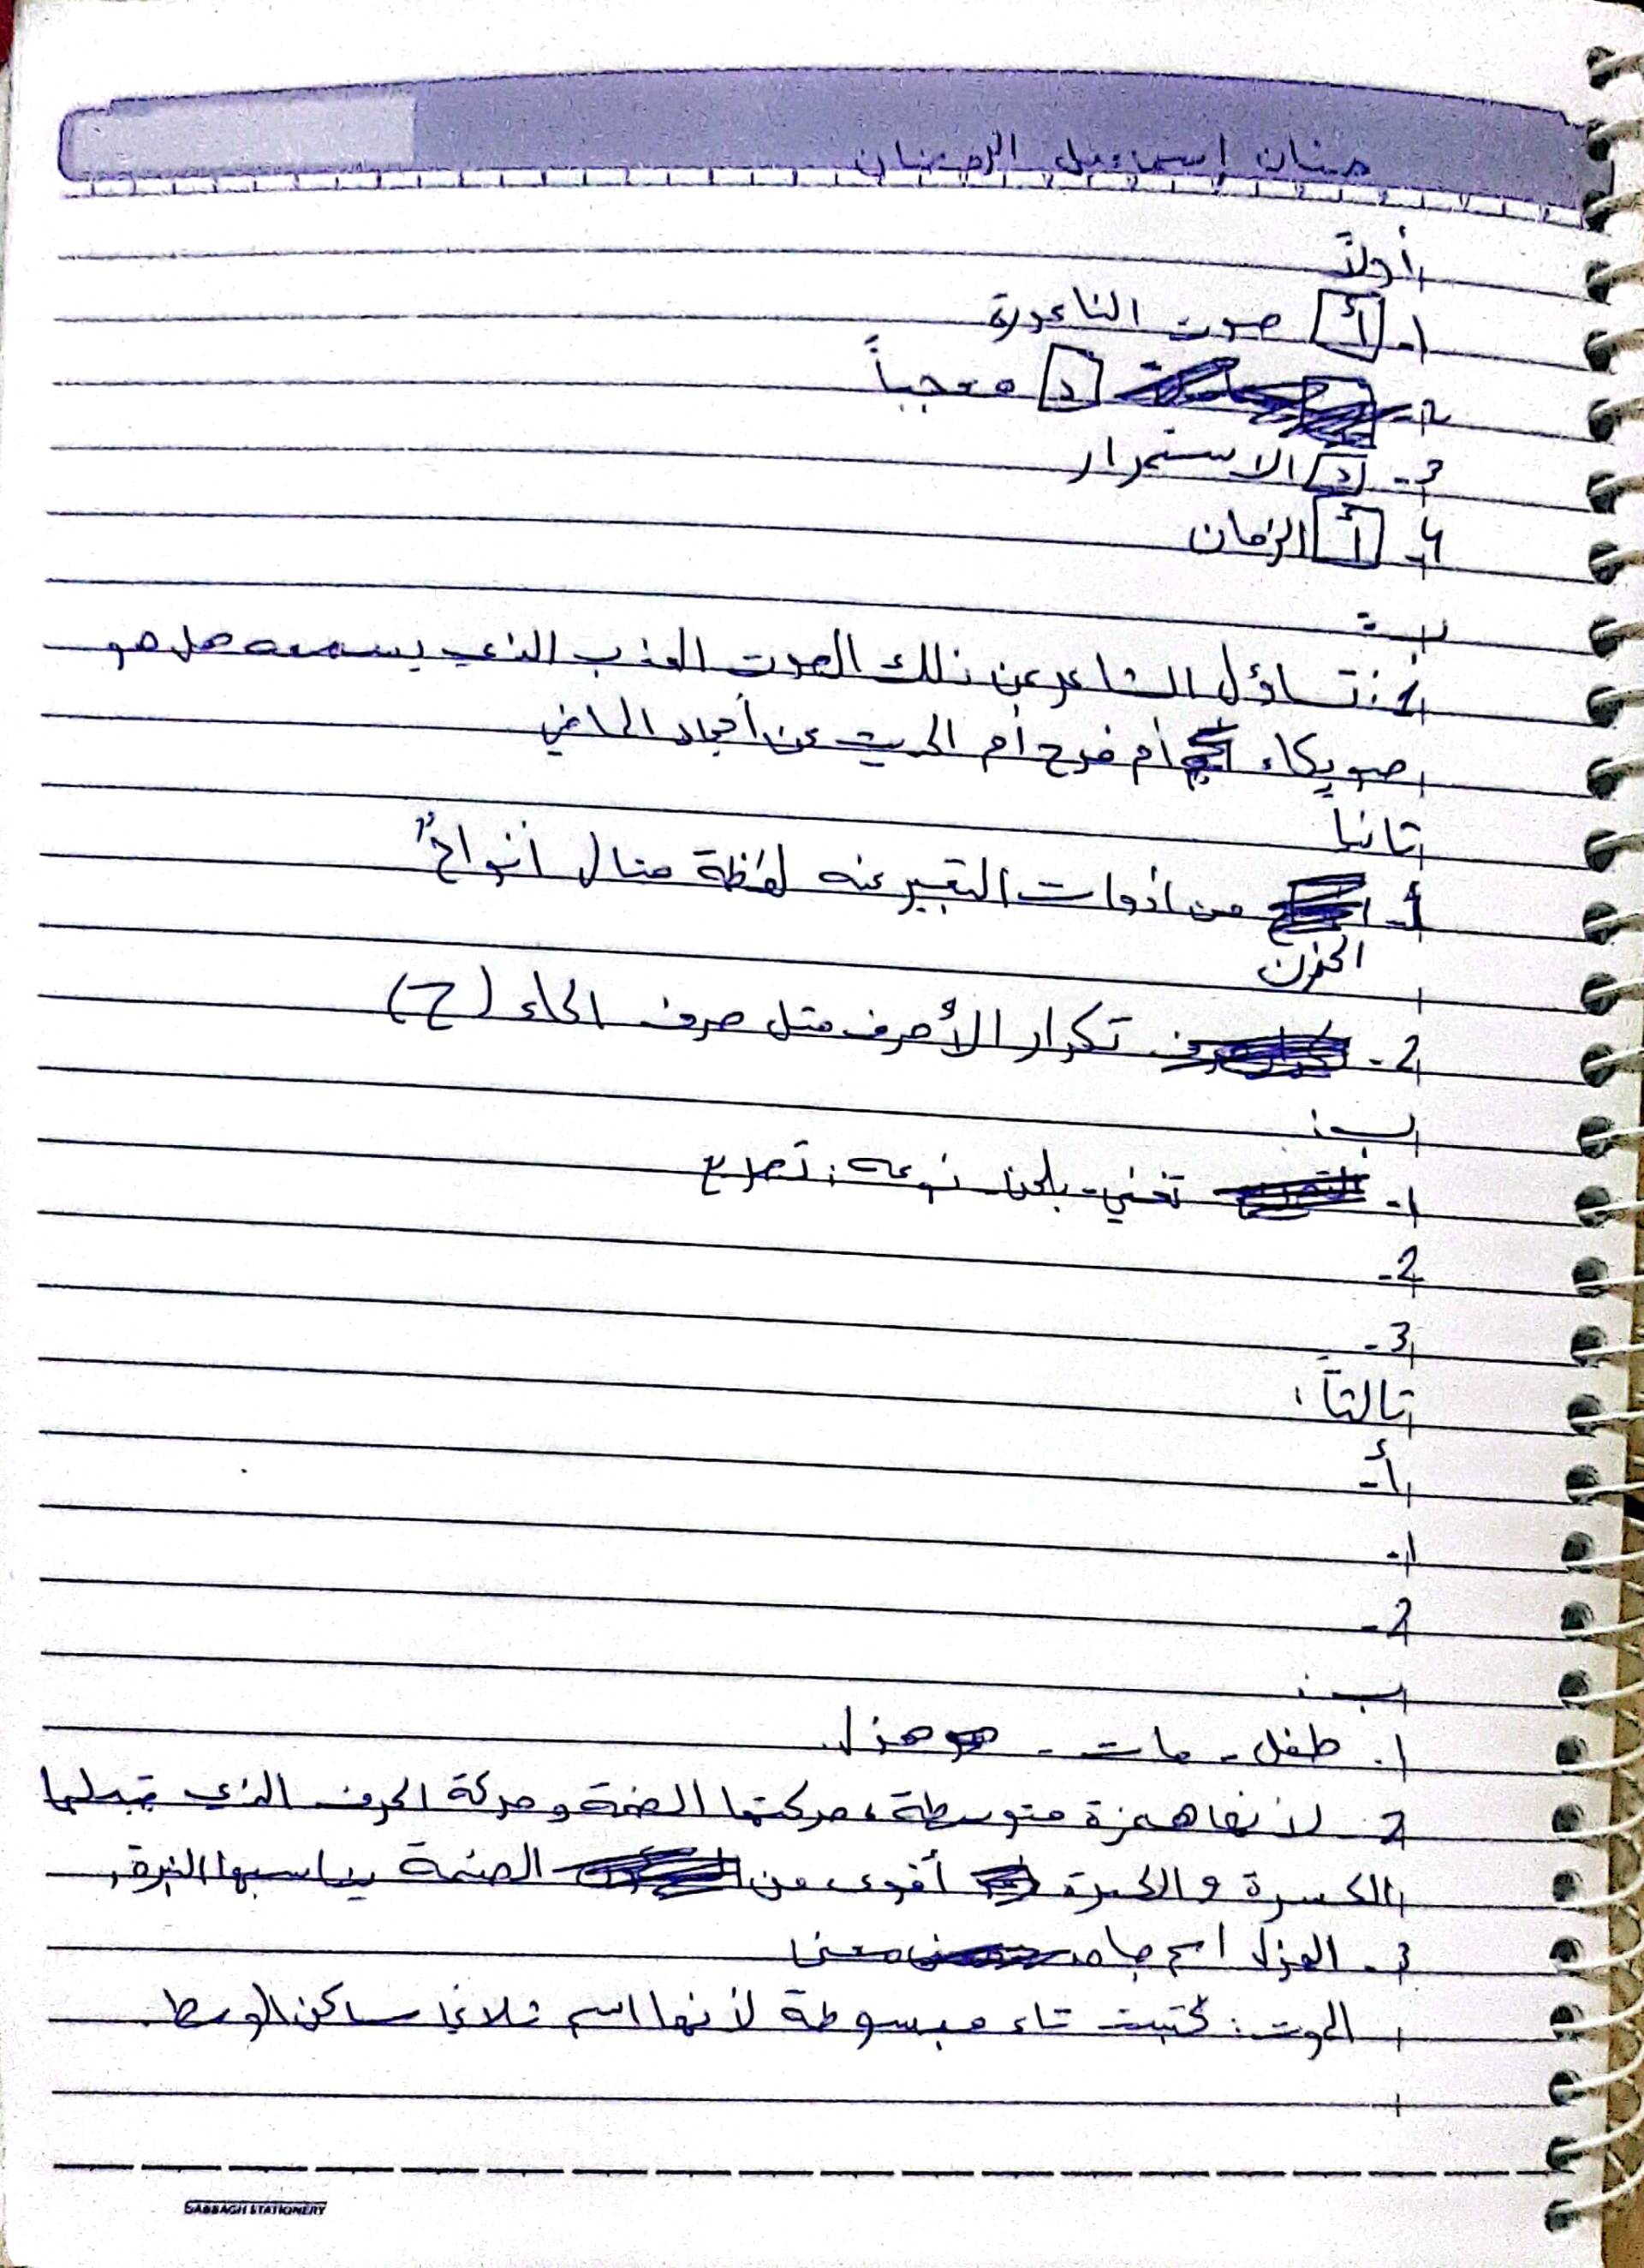 حنان إسماعيل الرمضان
أولاً
1- أ صوت الناعورة
2- د معجباً
3- د الاستمرار
4- أ الزمان
ب:
1: تساؤل الشاعر عن ذلك الصوت العذب الذي يسمعه هل هو
هو بكاء أم فرح أم الحديث عن أمجاد الماضي
ثانيا
1- من أدوات التعبير عنه لفظة مثال أنواح"
الحزن
2- تكرار الأحرف مثل حرف الحاء (ح)
ب:
1- تغني - بلحن نوعه: تصريع
2-
3-
ثالثاً:
أ-
1-
2-
ب:
1. طفل - مات - هزل
2- لأنها همزة متوسطة، حركتها الضمة و حركة الحرف الذي قبلها
الكسرة و الكسرة أقوى من الضمة يناسبها النبرة.
3- الهزل اسم جامد معنى
الموت: كتبت تاء مبسوطة لأنها اسم ثلاثي ساكن الوسط.
SABBAGH STATIONERY